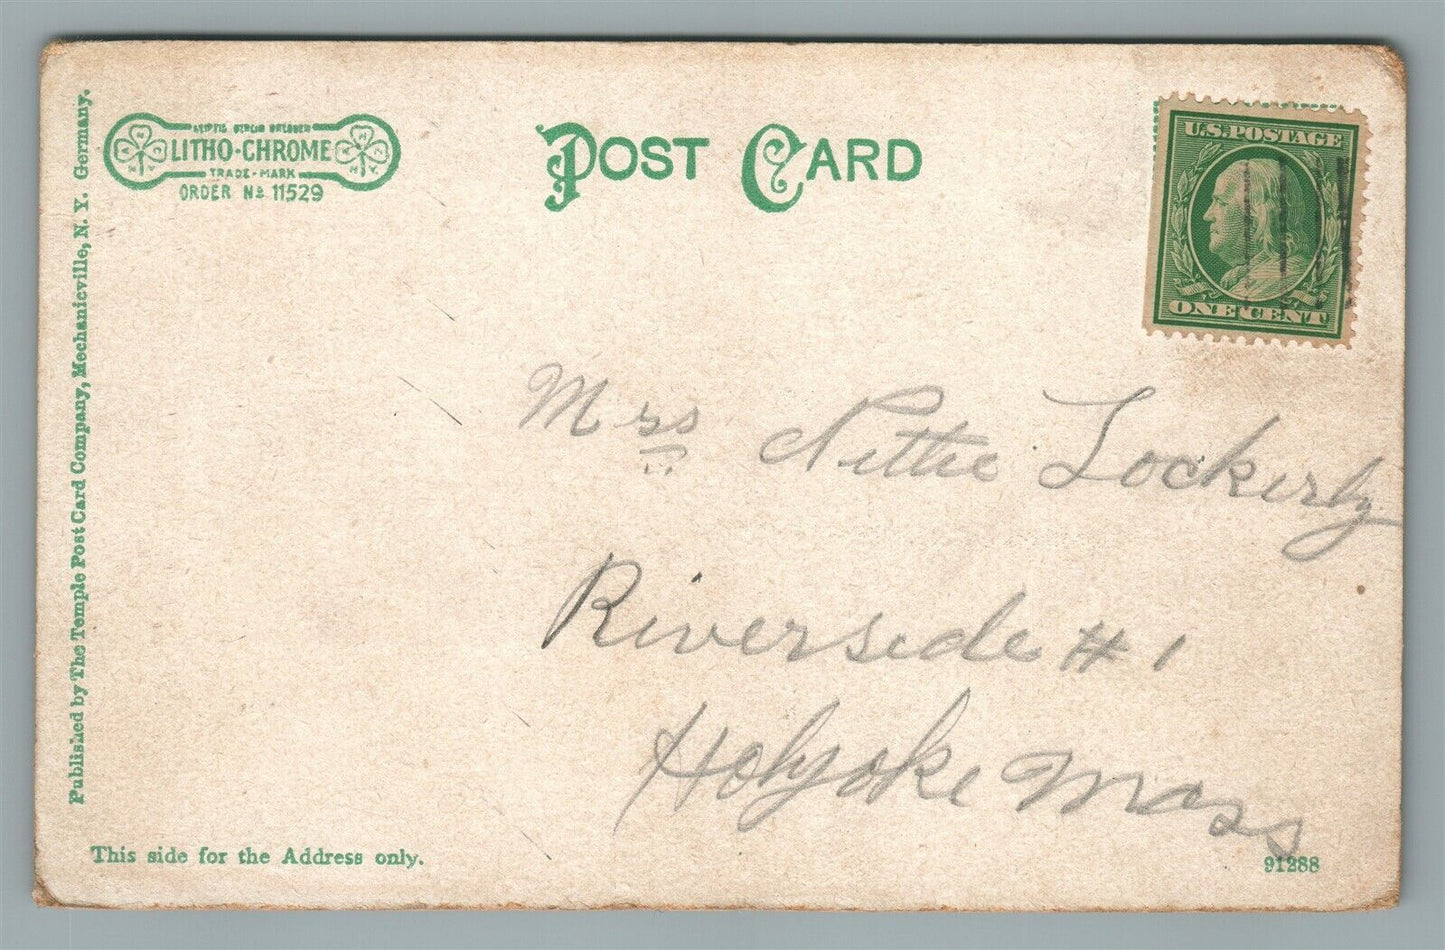 LEIPZIG BERLIN DRESDEN
LITHO-CHROME
TRADE-MARK
ORDER No 11529
POST CARD
U.S. POSTAGE
ONE CENT
Published by The Temple Post Card Company, Mechanicville, N. Y. Germany.
Mrs Nettie Lockerby
Riverside # 1
Holyoke Mass
This side for the Address only.
91288